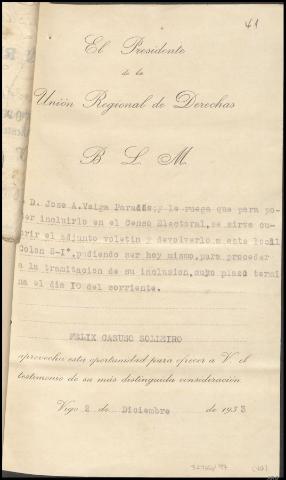 41
El Presidente
de la
Unión Regional de Derechas
B. L. M.
D. Jose A. Veiga Paradís; y le ruega que para po-
der incluirlo en el Censo Electoral, se sirva cu-
brir el adjunto voletin y devolverlo a este local
Colon 2-Iº, pudiendo ser hoy mismo, para proceder
a la tramitación de su inclusion, cuyo plazo termi
na el dia IO del corriente.
FELIX CASUSO SOLLEIRO
aprovecha esta oportunidad para ofrecer a V. el
testimonio de su más distinguida consideración
Vigo 2 de Diciembre de 1933